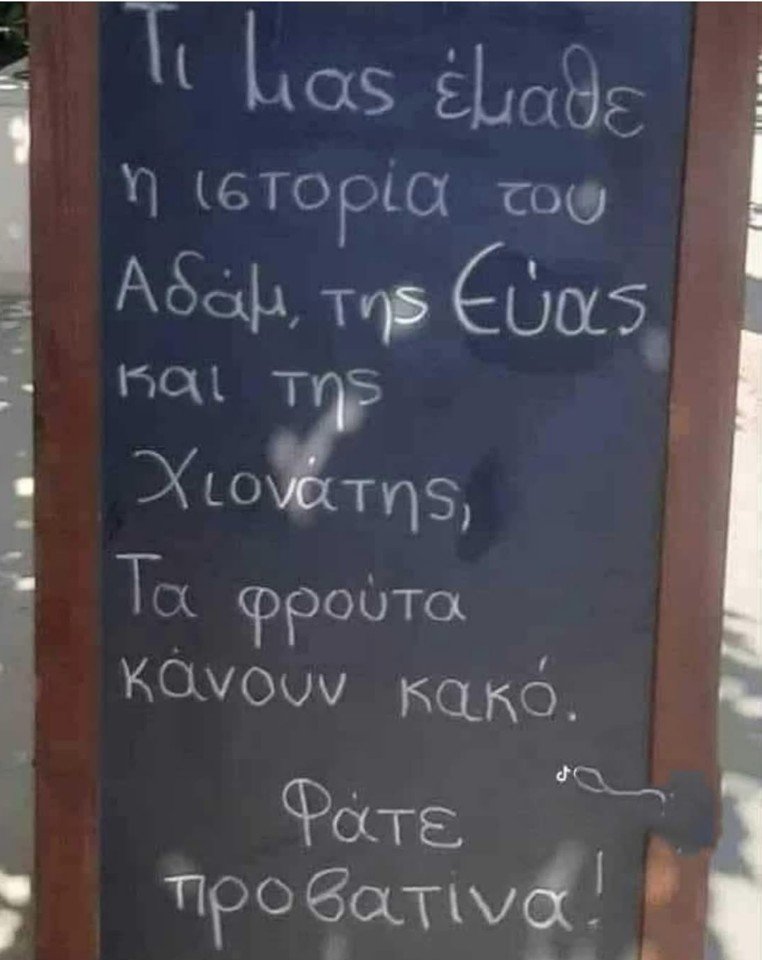 Τι μας έμαθε
η ιστορία του
Αδάμ, της Εύας
και της
Χιονάτης,
Τα φρούτα
κάνουν κακό.
Φάτε
προβατίνα!